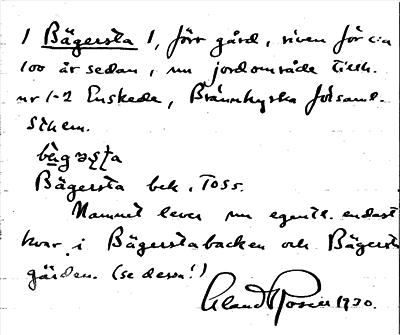 1 Bägersta 1, förr gård, riven för c:a
100 år sedan, nu jordområde tillh.
nr 1-2 Enskede, Brännkyrka församl.
Sthlm.
Bägersta bek. Toss.
Namnet lever nu egentl. endast
kvar i Bägerstabacken och Bägersta
gärden. (se dessa!)
Rosén 1920.